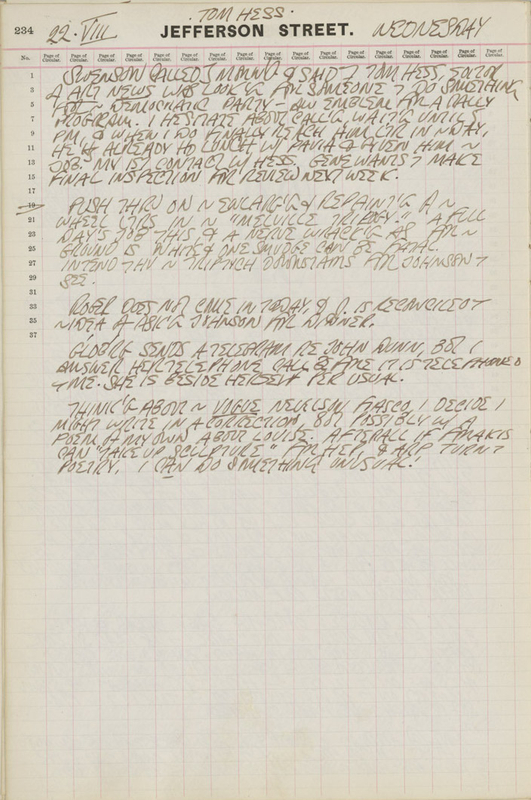 TOM HESS.
234 22. VIII JEFFERSON STREET. WEDNESDAY
No. Page of Circular. Page of Circular. Page of Circular. Page of Circular. Page of Circular. Page of Circular. Page of Circular. Page of Circular. Page of Circular. Page of Circular. Page of Circular. Page of Circular. Page of Circular. Page of Circular. Page of Circular. Page of Circular. Page of Circular. Page of Circular.
1 SWENSON CALLED & SAID TOM HESS, EDITOR
3 ART NEWS WAS LOOK'G FOR SOMEONE DO SOMETHING
5 FOR ~ DEMOCRATIC PARTY — AN EMBLEM FOR A RALLY
7 PROGRAM. I HESITATE ABOUT CALL'G, WAIT'G UNTIL 5
9 PM, & WHEN I DO FINALLY REACH HIM, LTR IN DAY,
11 HE ALREADY LUNCH W/ PAVIA & GIVEN HIM ~
13 JOB. MY 1ST CONTACT W/ HESS. GENE WANTS MAKE
15 FINAL INSPECTION FOR REVIEW NEXT WEEK.
17
19 PUSH THRU ON ~ ENLARG'G & REPAINT'G A ~
21 WHEEL ~ "MELVILLE TRILOGY." A FULL
23 DAY'S JOB THIS & A NERVE WRACK'G FOR ~
25 GROUND IS WHITE & ONE SMUDGE CAN BE FATAL.
27 INTEND ~ TRIPTYCH DOWNSTAIRS FOR JOHNSON
29 SEE.
31
33 ROGER DOES NOT COME IN TODAY, & IS RECONCILED
35 ~ IDEA ASK'G JOHNSON FOR DINNER.
37
SENDS A TELEGRAM RE JOHN DUNN, BUT I
ANSWER HER TELEPHONE CALL BEFORE IT IS TELEPHONED
ME. SHE IS BESIDE HERSELF PER USUAL.
THINK'G ABOUT ~ VOGUE FIASCO, I DECIDE I
MIGHT WRITE IN A CORRECTION, BUT POSSIBLY W/ A
POEM MY OWN ABOUT LOUISE. AFTER ALL IF
CAN "TAKE UP SCULPTURE" FOR HER, & ARP TURN
POETRY, I CAN DO SOMETHING UNUSUAL.